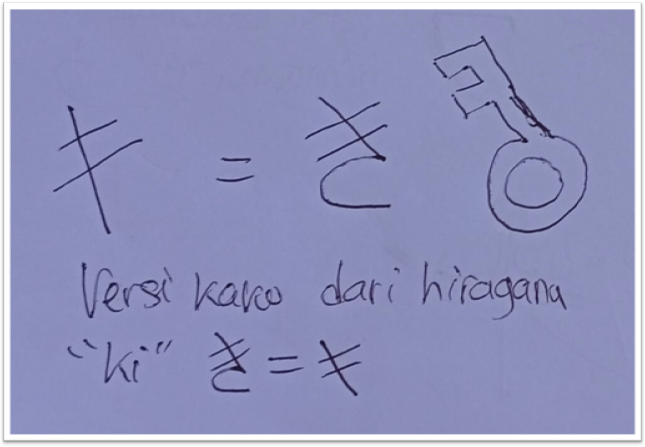 キ = き
Versi kaku dari hiragana
"ki" き = キ